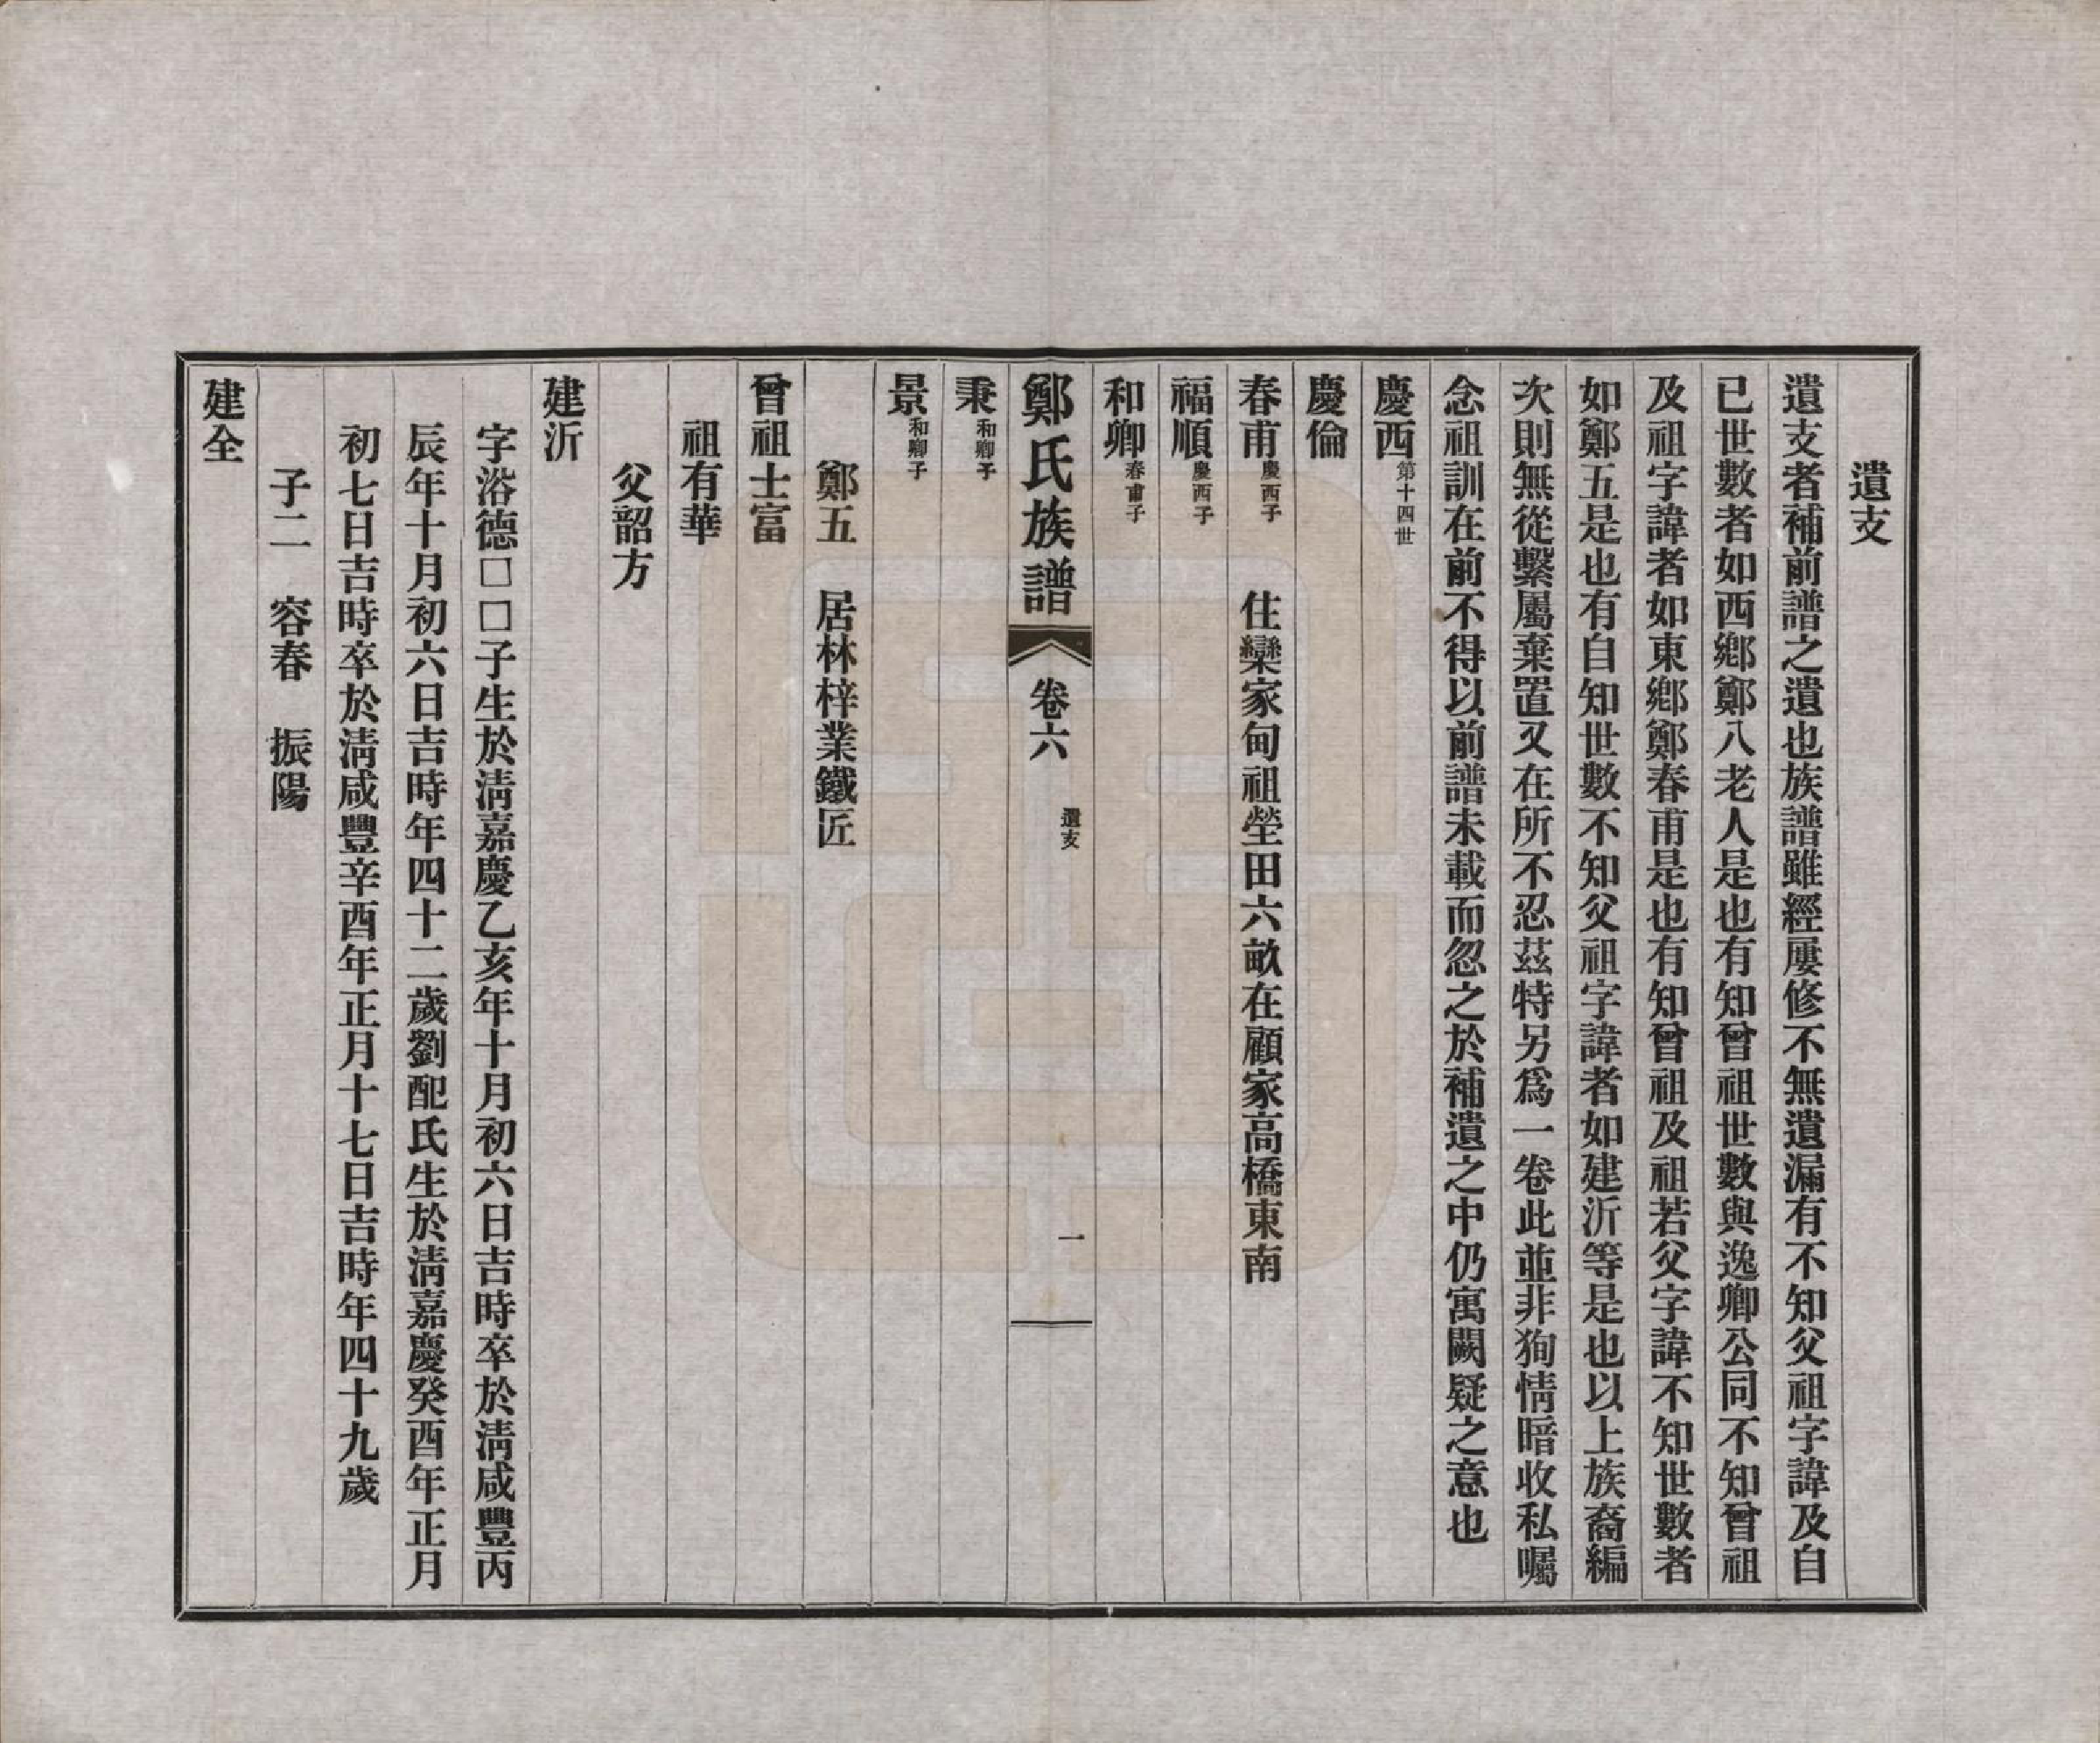 遺支
遺支者補前譜之遺也族譜雖經屢修不無遺漏有不知父祖字諱及自
已世數者如西鄉鄭八老人是也有知曾祖世數與逸卿公同不知曾祖
及祖字諱者如東鄉鄭春甫是也有知曾祖及祖若父字諱不知世數者
如鄭五是也有自知世數不知父祖字諱者如建沂等是也以上族裔編
次則無從繫屬棄置又在所不忍茲特另爲一卷此並非狥情暗收私囑
念祖訓在前不得以前譜未載而忽之於補遺之中仍寓闕疑之意也
慶西第十四世
慶倫
春甫慶西子 住欒家甸祖塋田六畝在顧家高橋東南
福順慶西子
和卿春甫子
鄭氏族譜 卷六 遺支 一
秉和卿子
景和卿子
鄭五 居林梓業鐵匠
曾祖士富
祖有華
父韶方
建沂
字浴德□□子生於淸嘉慶乙亥年十月初六日吉時卒於淸咸豐丙
辰年十月初六日吉時年四十二歲劉配氏生於淸嘉慶癸酉年正月
初七日吉時卒於淸咸豐辛酉年正月十七日吉時年四十九歲
子二 容春 振陽
建全